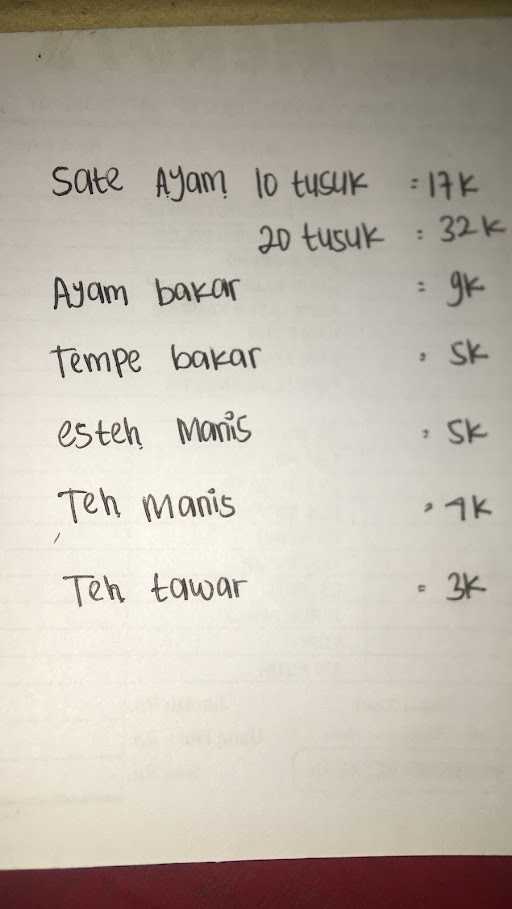 Sate Ayam 10 tusuk : 17K
20 tusuk : 32K
Ayam bakar : 9K
Tempe bakar : 5K
esteh Manis : 5K
Teh Manis : 4K
Teh tawar = 3K